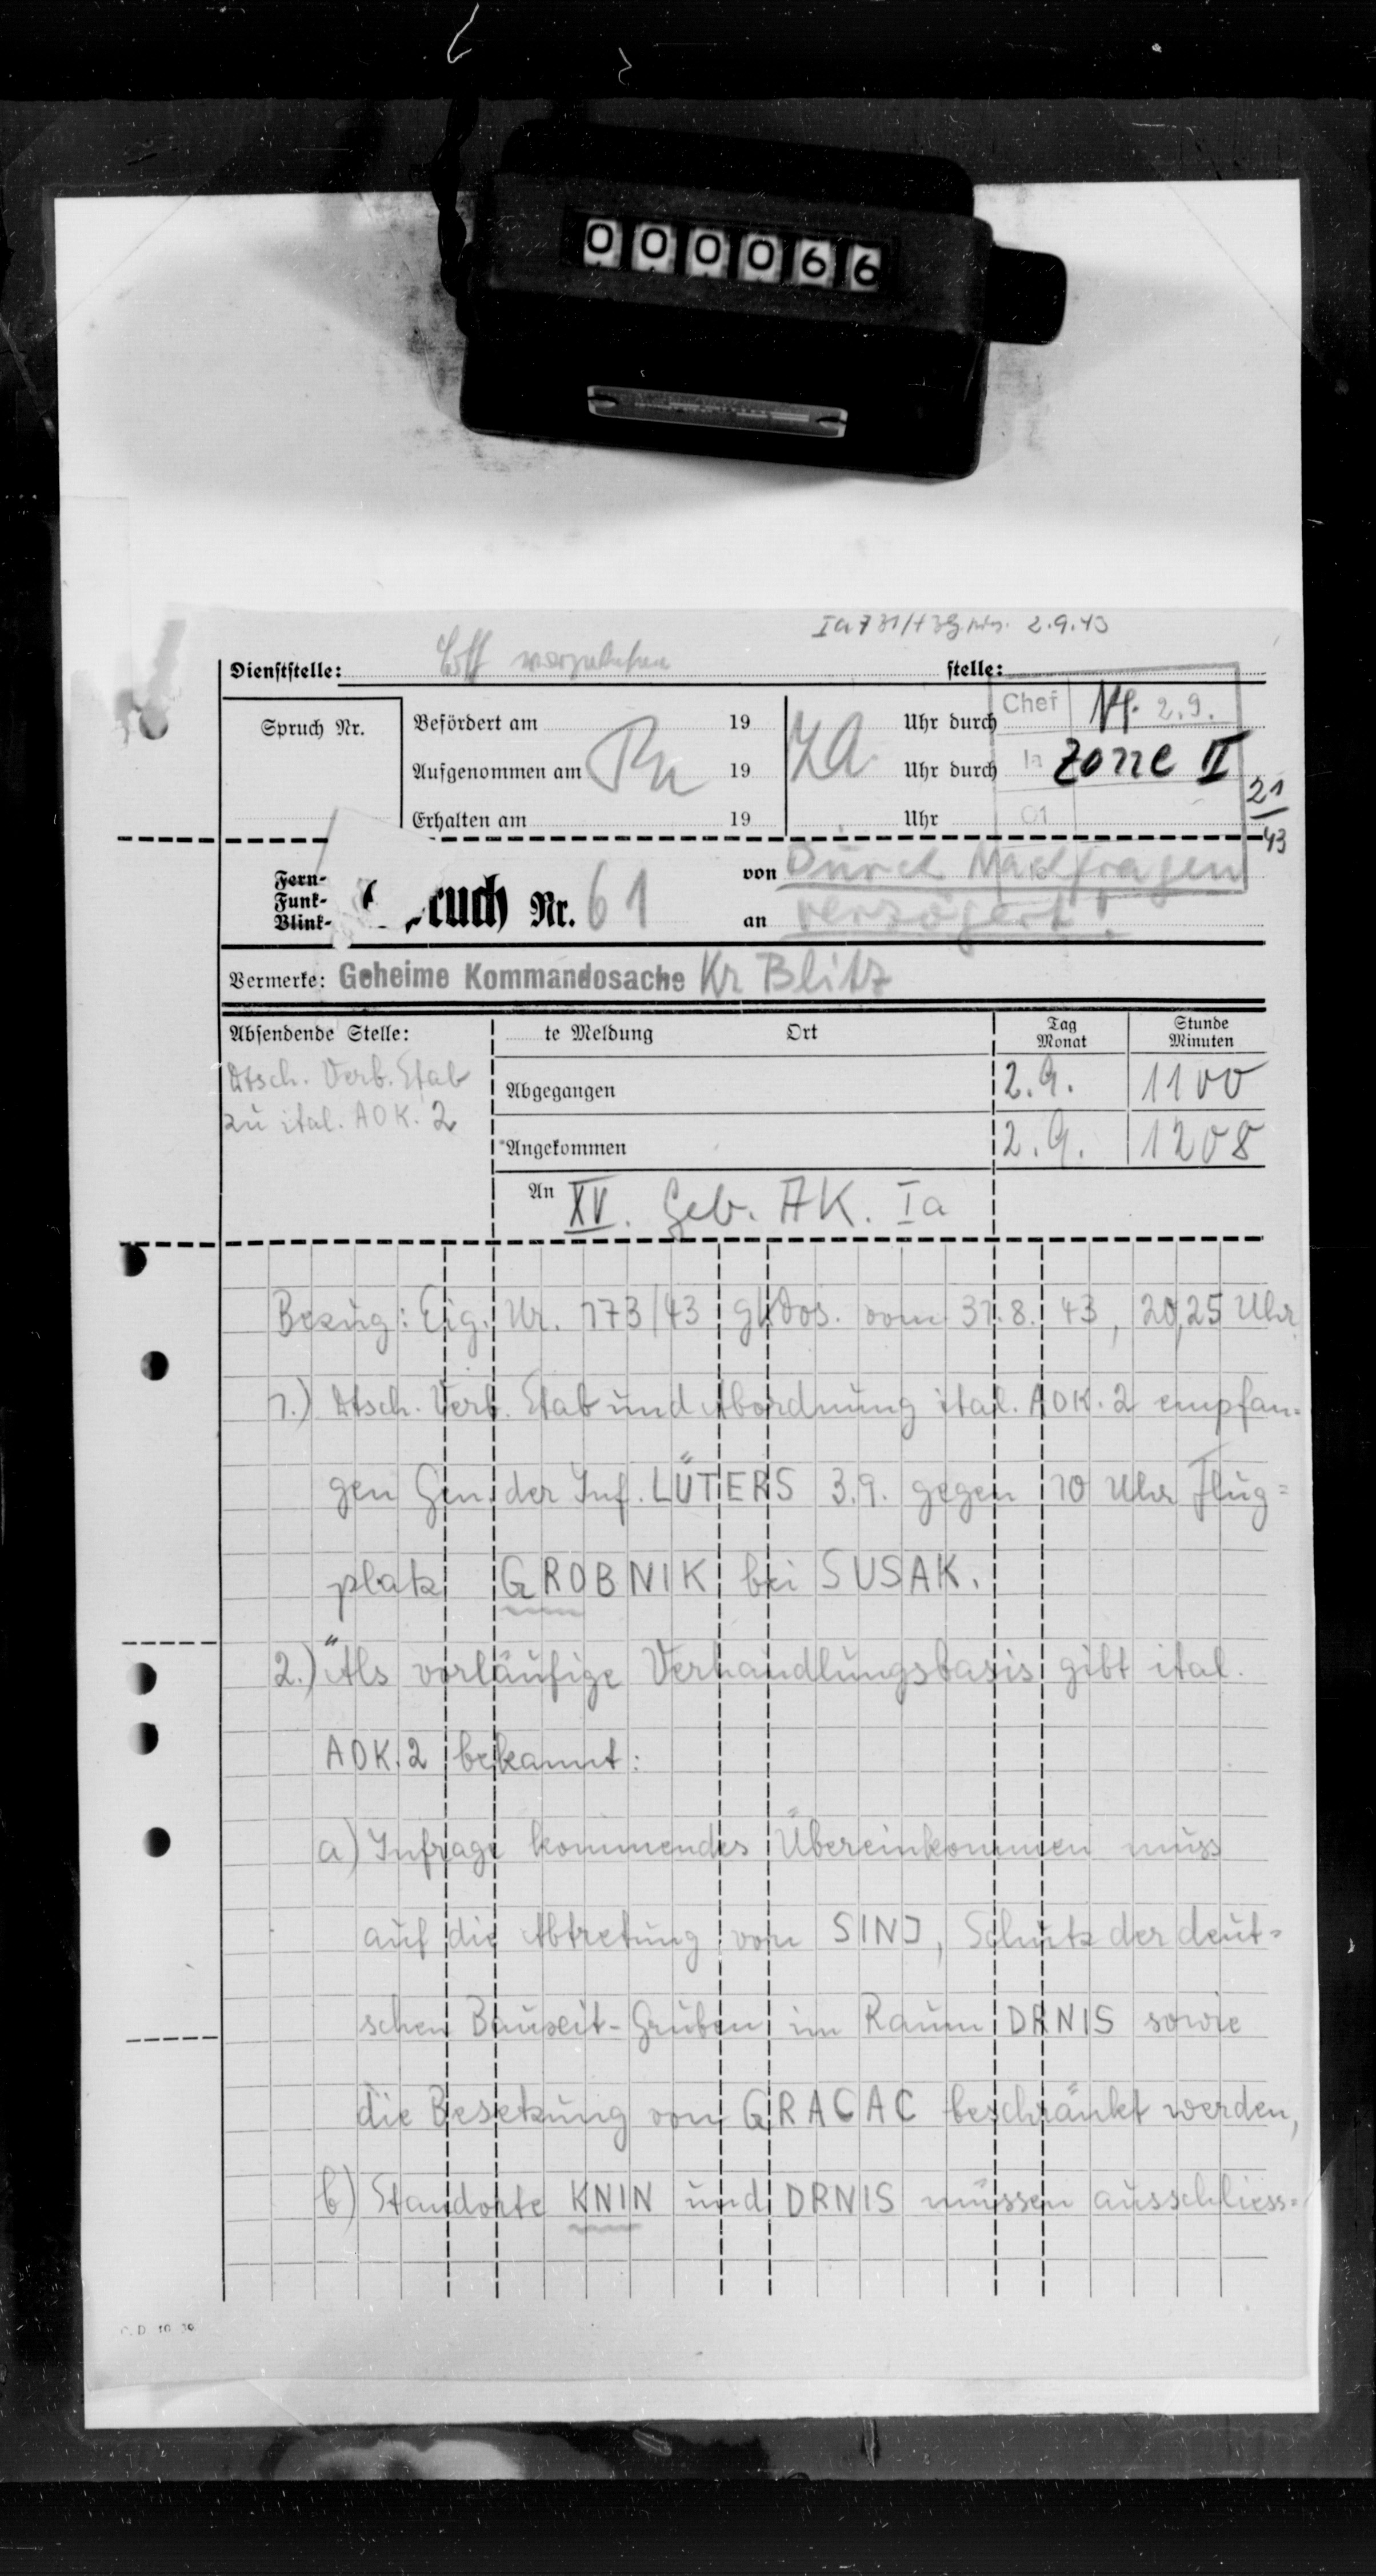 000066
Ia 731/43 g.Kdos. 2.9.43
Dienststelle: vorzulegen stelle:
Spruch Nr.
Befördert am 19 Uhr durch
Aufgenommen am 19 Uhr durch
Erhalten am 19 Uhr
Chef 2.9.
Ia Zone II
01
21
43
Fern-
Funk-
Blink-
ruch Nr. 61
von Durch Nachfragen
an verzögert!
Vermerke: Geheime Kommandosache Kr Blitz
Absendende Stelle:
Dtsch. Verb. Stab
zu ital. AOK. 2
te Meldung Ort Tag Monat Stunde Minuten
Abgegangen 2.9. 1100
Angekommen 2.9. 1208
An XV. Geb. AK. Ia
Bezug: Eig. Nr. 173/43 gKdos. vom 31.8.43, 20,25 Uhr
1.) Dtsch. Verb. Stab und Abordnung ital. AOK. 2 empfan=
gen Gen. der Inf. LÜTERS 3.9. gegen 10 Uhr Flug=
platz GROBNIK bei SUSAK.
2.) Als vorläufige Verhandlungsbasis gibt ital.
AOK. 2 bekannt:
a) Infrage kommendes Übereinkommen muss
auf die Abtretung von SINJ, Schutz der deut=
schen Bauxit-Gruben im Raum DRNIS sowie
die Besetzung von GRACAC beschränkt werden,
b) Standorte KNIN und DRNIS müssen ausschliess=